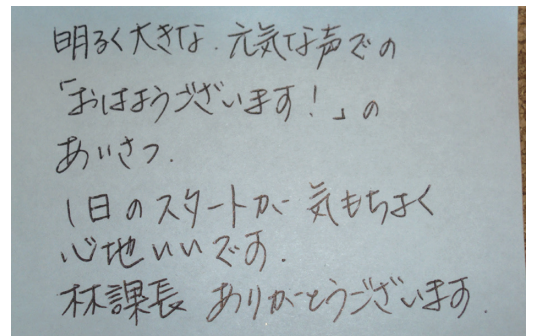 明るく大きな.元気な声での
「おはようございます!」の
あいさつ.
1日のスタートが気もちよく
心地いいです.
林課長 ありがとうございます.